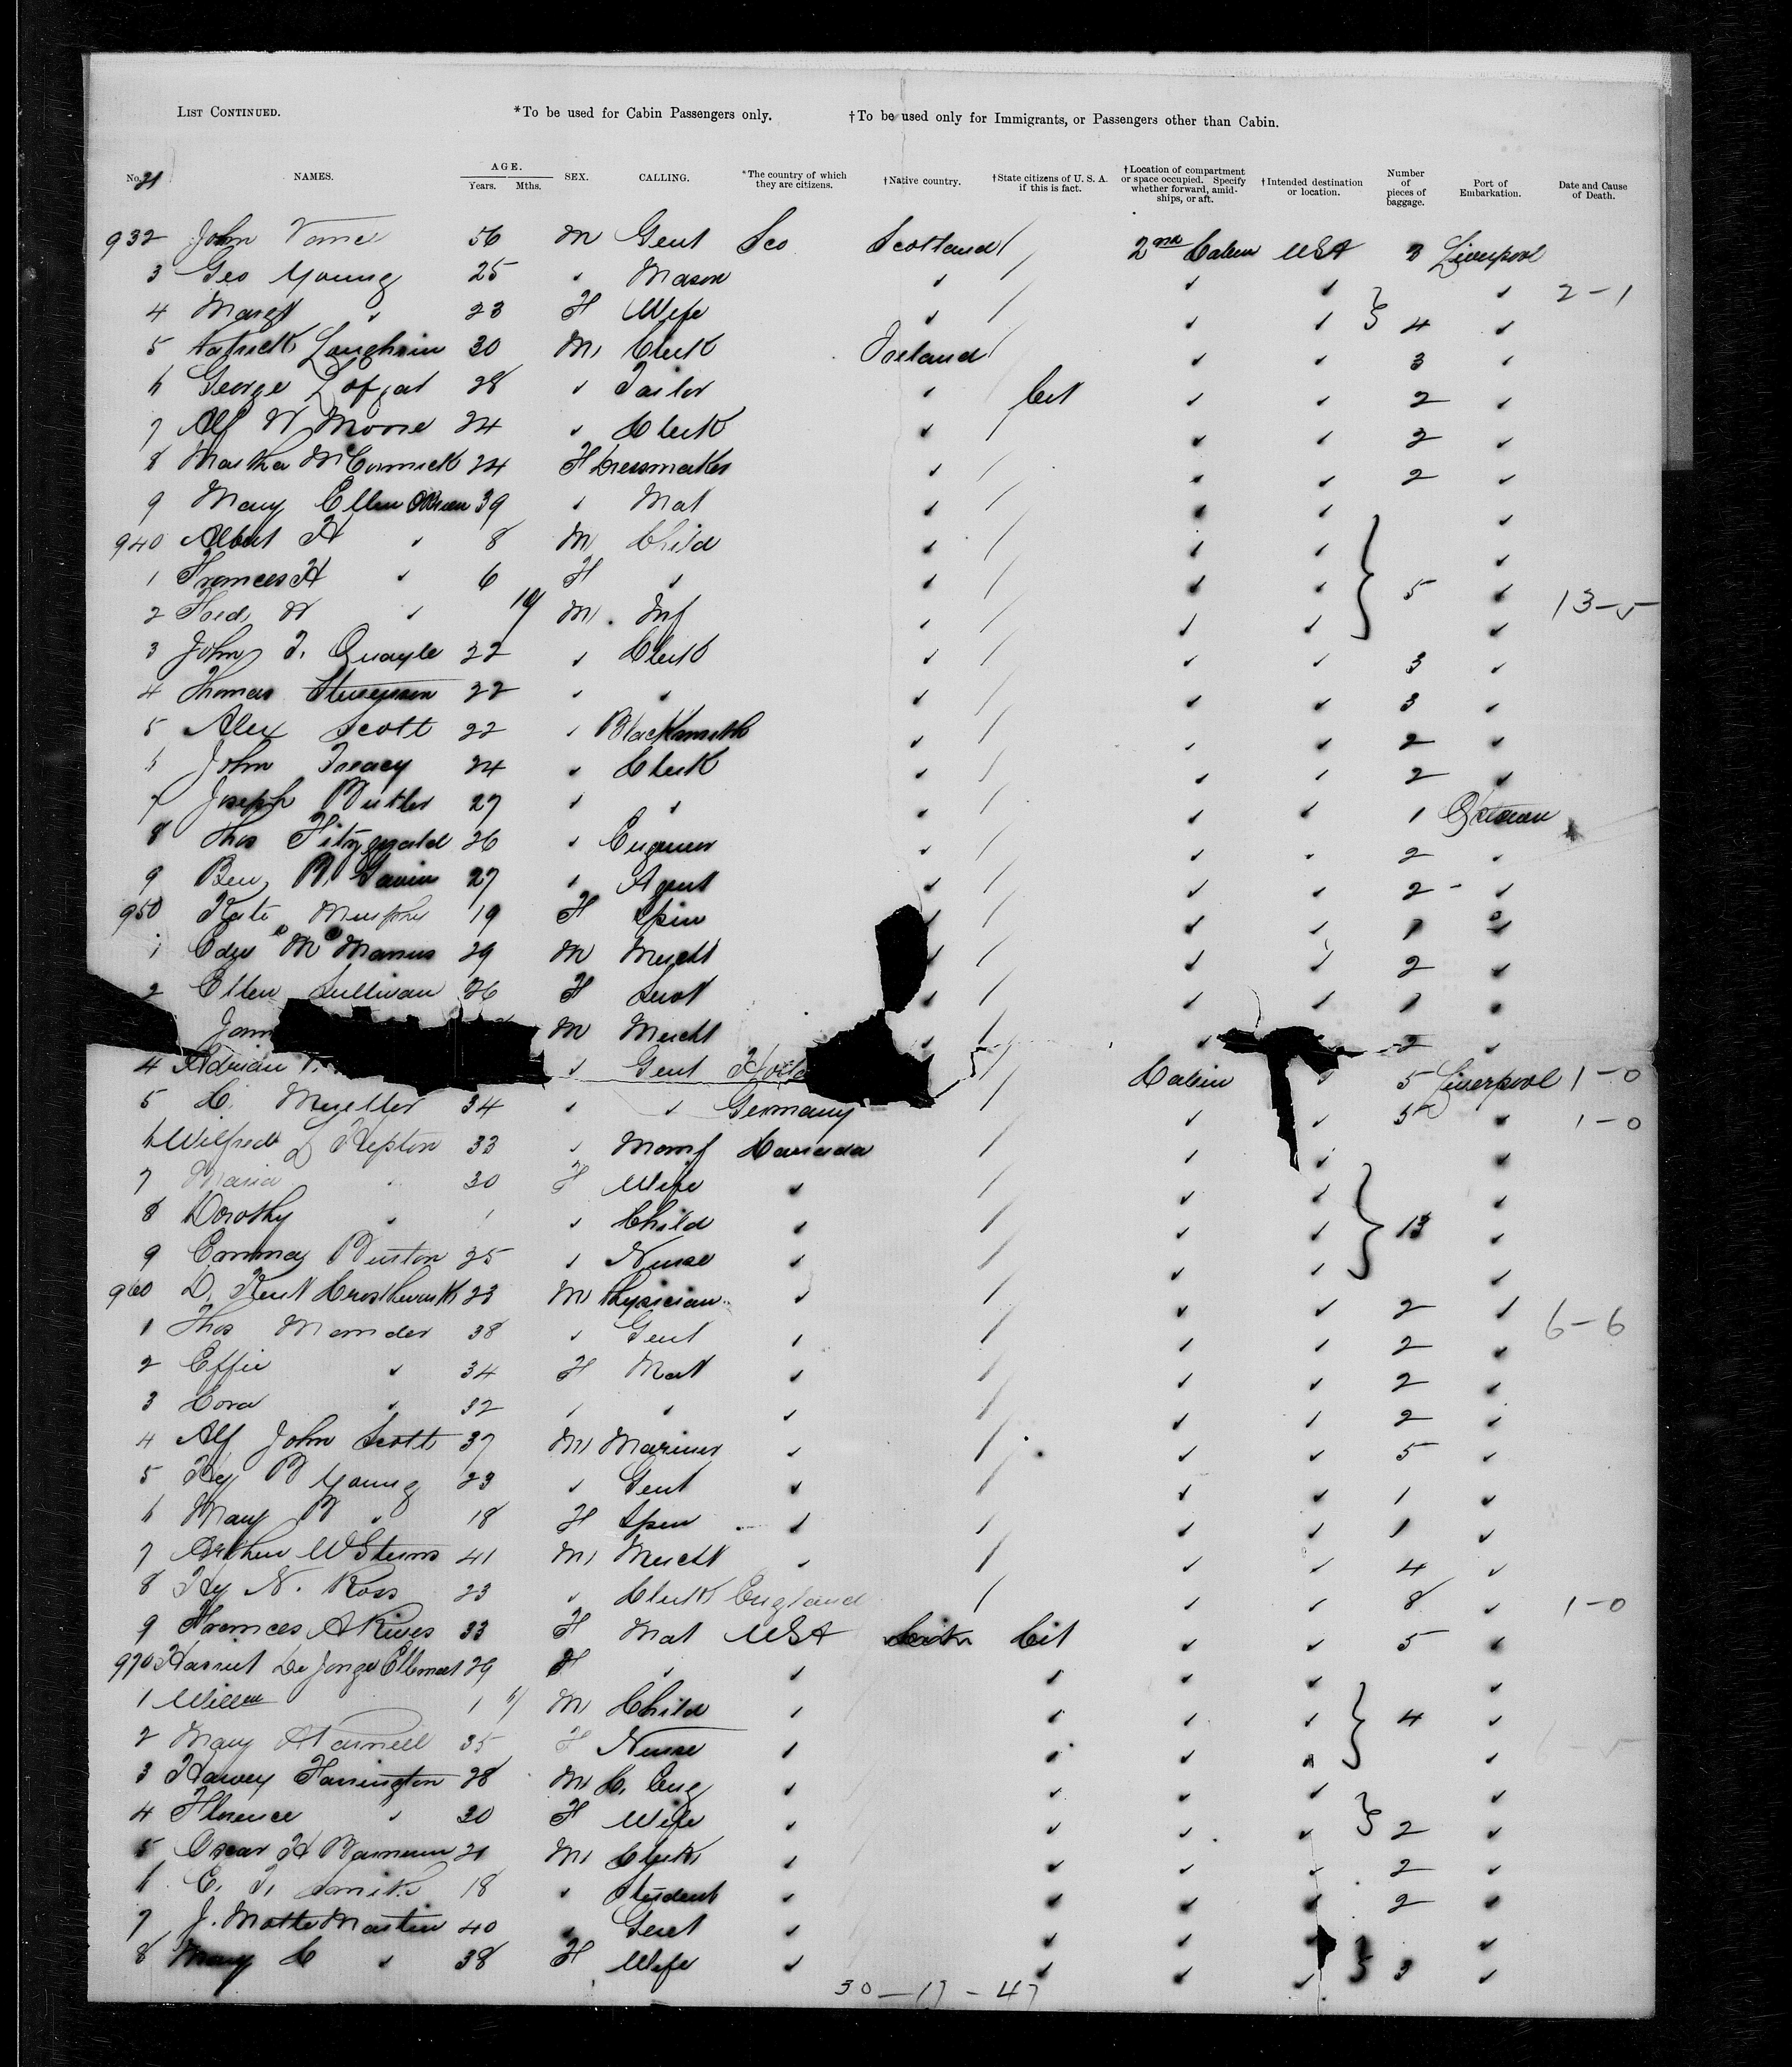 LIST CONTINUED. *To be used for Cabin Passengers only. †To be used only for Immigrants, or Passengers other than Cabin.
No. 21 NAMES. AGE. Years. Mths. SEX. CALLING. *The country of which they are citizens. †Native country. †State citizens of U. S. A. if this is fact. †Location of compartment or space occupied. Specify whether forward, amidships, or aft. †Intended destination or location. Number of pieces of baggage. Port of Embarkation. Date and Cause of Death.
932 John 56 M Gent Sco Scotland / 2nd Cabin USA 3 Liverpool
3 Geo Young 25 " Mason " / " " " 2-1
4 Margt " 23 F Wife " / " " 4 "
5 Patrick Loughrin 30 M Clerk Ireland / " " 3 "
6 George 28 " Tailor " Cit " " 2 "
7 Alf W Moore 24 " Clerk " / " " 2 "
8 Martha McCormick 24 F Dressmaker " / " " 2 "
9 Mary Ellen OBrien 39 " Mat " / " " "
940 Albert H " 8 M Child " / " " "
1 Frances H " 6 F " " / " " 5 "
2 Fred W " 10/ M Inf " / " " " 13-5
3 John T. Quayle 22 " Clerk " / " " 3 "
4 Thomas Stevenson 22 " " " / " " 3 "
5 Alex Scott 22 " Blacksmith " / " " 2 "
6 John Treacy 24 " Clerk " / " " 2 "
7 Joseph Butler 27 " " " / " " 1
8 Thos Fitzgerald 26 " Engineer " / " " 2 "
9 Benj B. 27 " Agent " / " " 2 "
950 Kate Murphy 19 F Spin " / " " 1 "
1 Edw McManus 29 M Mercht " / " " 2 "
2 Ellen Sullivan 26 F Servt " / " " 1 "
M Mercht " / " 2 "
4 Adrian " Gent / Cabin " 5 Liverpool 1-0
5 C. Mueller 34 " " Germany / " 5 " 1-0
6 Wilfred D Hepton 33 " Manf Canada / " " "
7 Maria " 30 F Wife " / " " "
8 Dorothy " 1 " Child " / " " 13 "
9 Emma Burton 25 " Nurse " / " " "
960 D. Kent 23 M Physician " / " " 2 "
1 Thos 38 " Gent " / " " 2 " 6-6
2 Effie " 34 F Mat " / " " 2 "
3 Cora " 32 " " " / " " 2 "
4 Alf John Scott 37 M Mariner " / " " 5 "
5 Hy B Young 23 " Gent " / " " 1 "
6 Mary B " 18 F Spin " / " " 1 "
7 Arthur W Sterns 41 M Mercht " / " " 4 "
8 Hy N. Ross 23 " Clerk England / " " 8 " 1-0
9 Frances A Rives 33 F Mat USA Cit " " 5 "
970 Harriet De Jonge 29 F " " " " " "
1 Willem 1 6/ M Child " " " " 4 "
2 Mary A 35 F Nurse " " " " "
3 Harvey Farrington 28 M C. Eng " " " " "
4 Florence " 30 F Wife " " " " 2 "
5 Oscar H 21 M Clerk " " " " 2 "
6 E. T. Smith 18 " Student " " " " 2 "
7 J. Motte Martin 40 " Gent " " " " "
8 Mary C " 38 F Wife " " " " 3 "
30-17-47